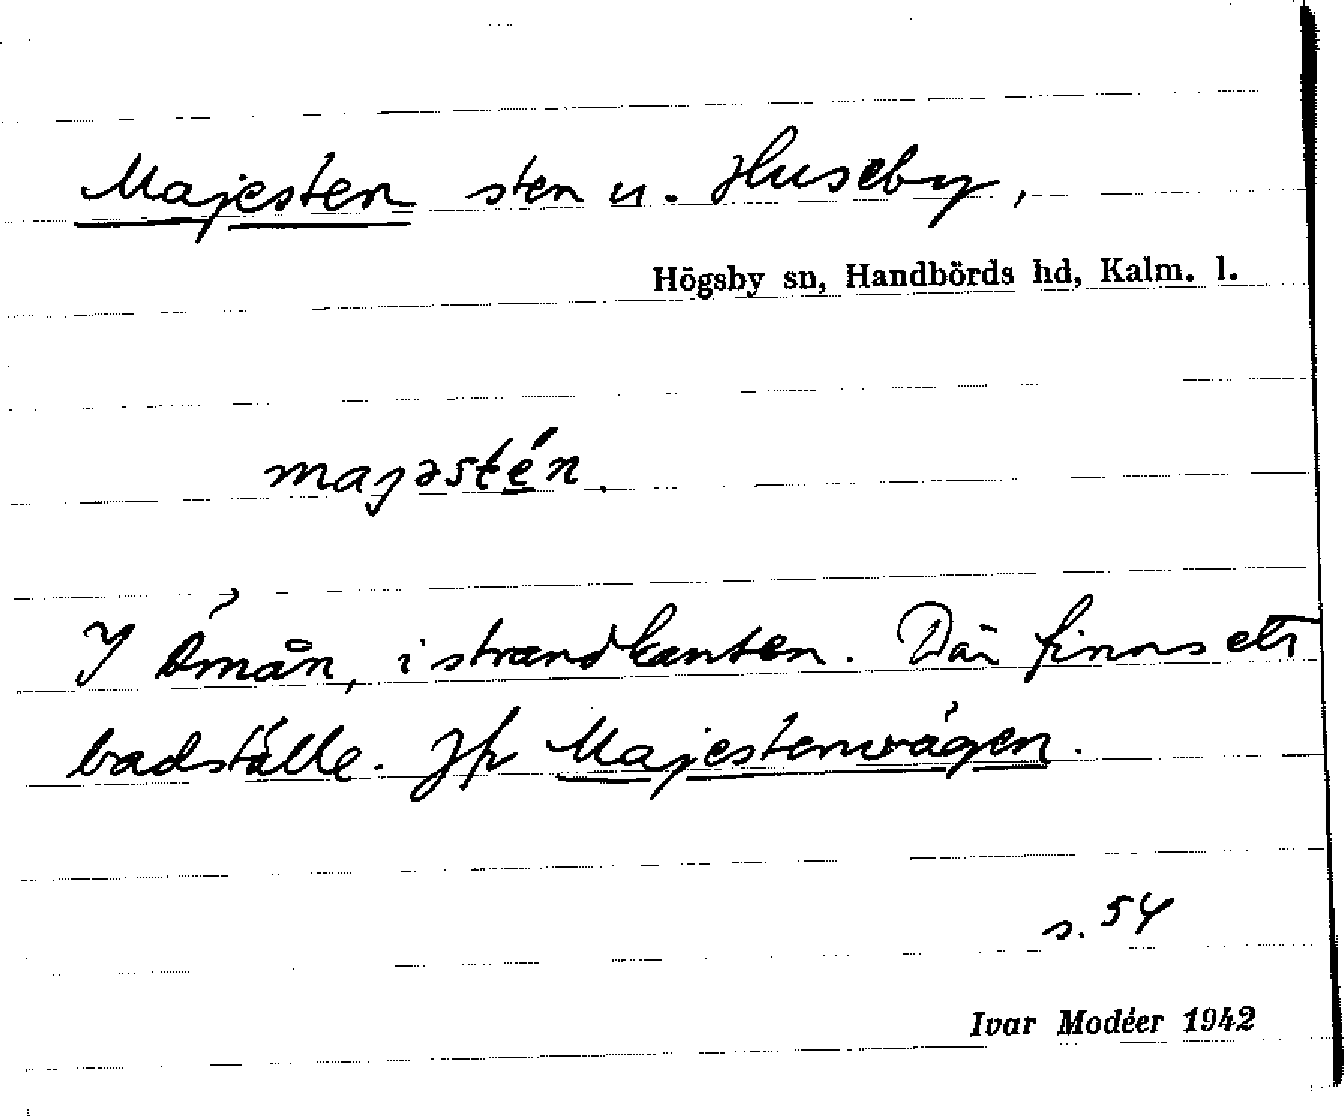 Majesten sten u. Huseby,
Högsby sn, Handbörds hd, Kalm. l.
majəstén.
I Åmån, i strandkanten. Där finns ett
badställe. Jfr Majestenvägen.
s. 54
Ivar Modéer 1942